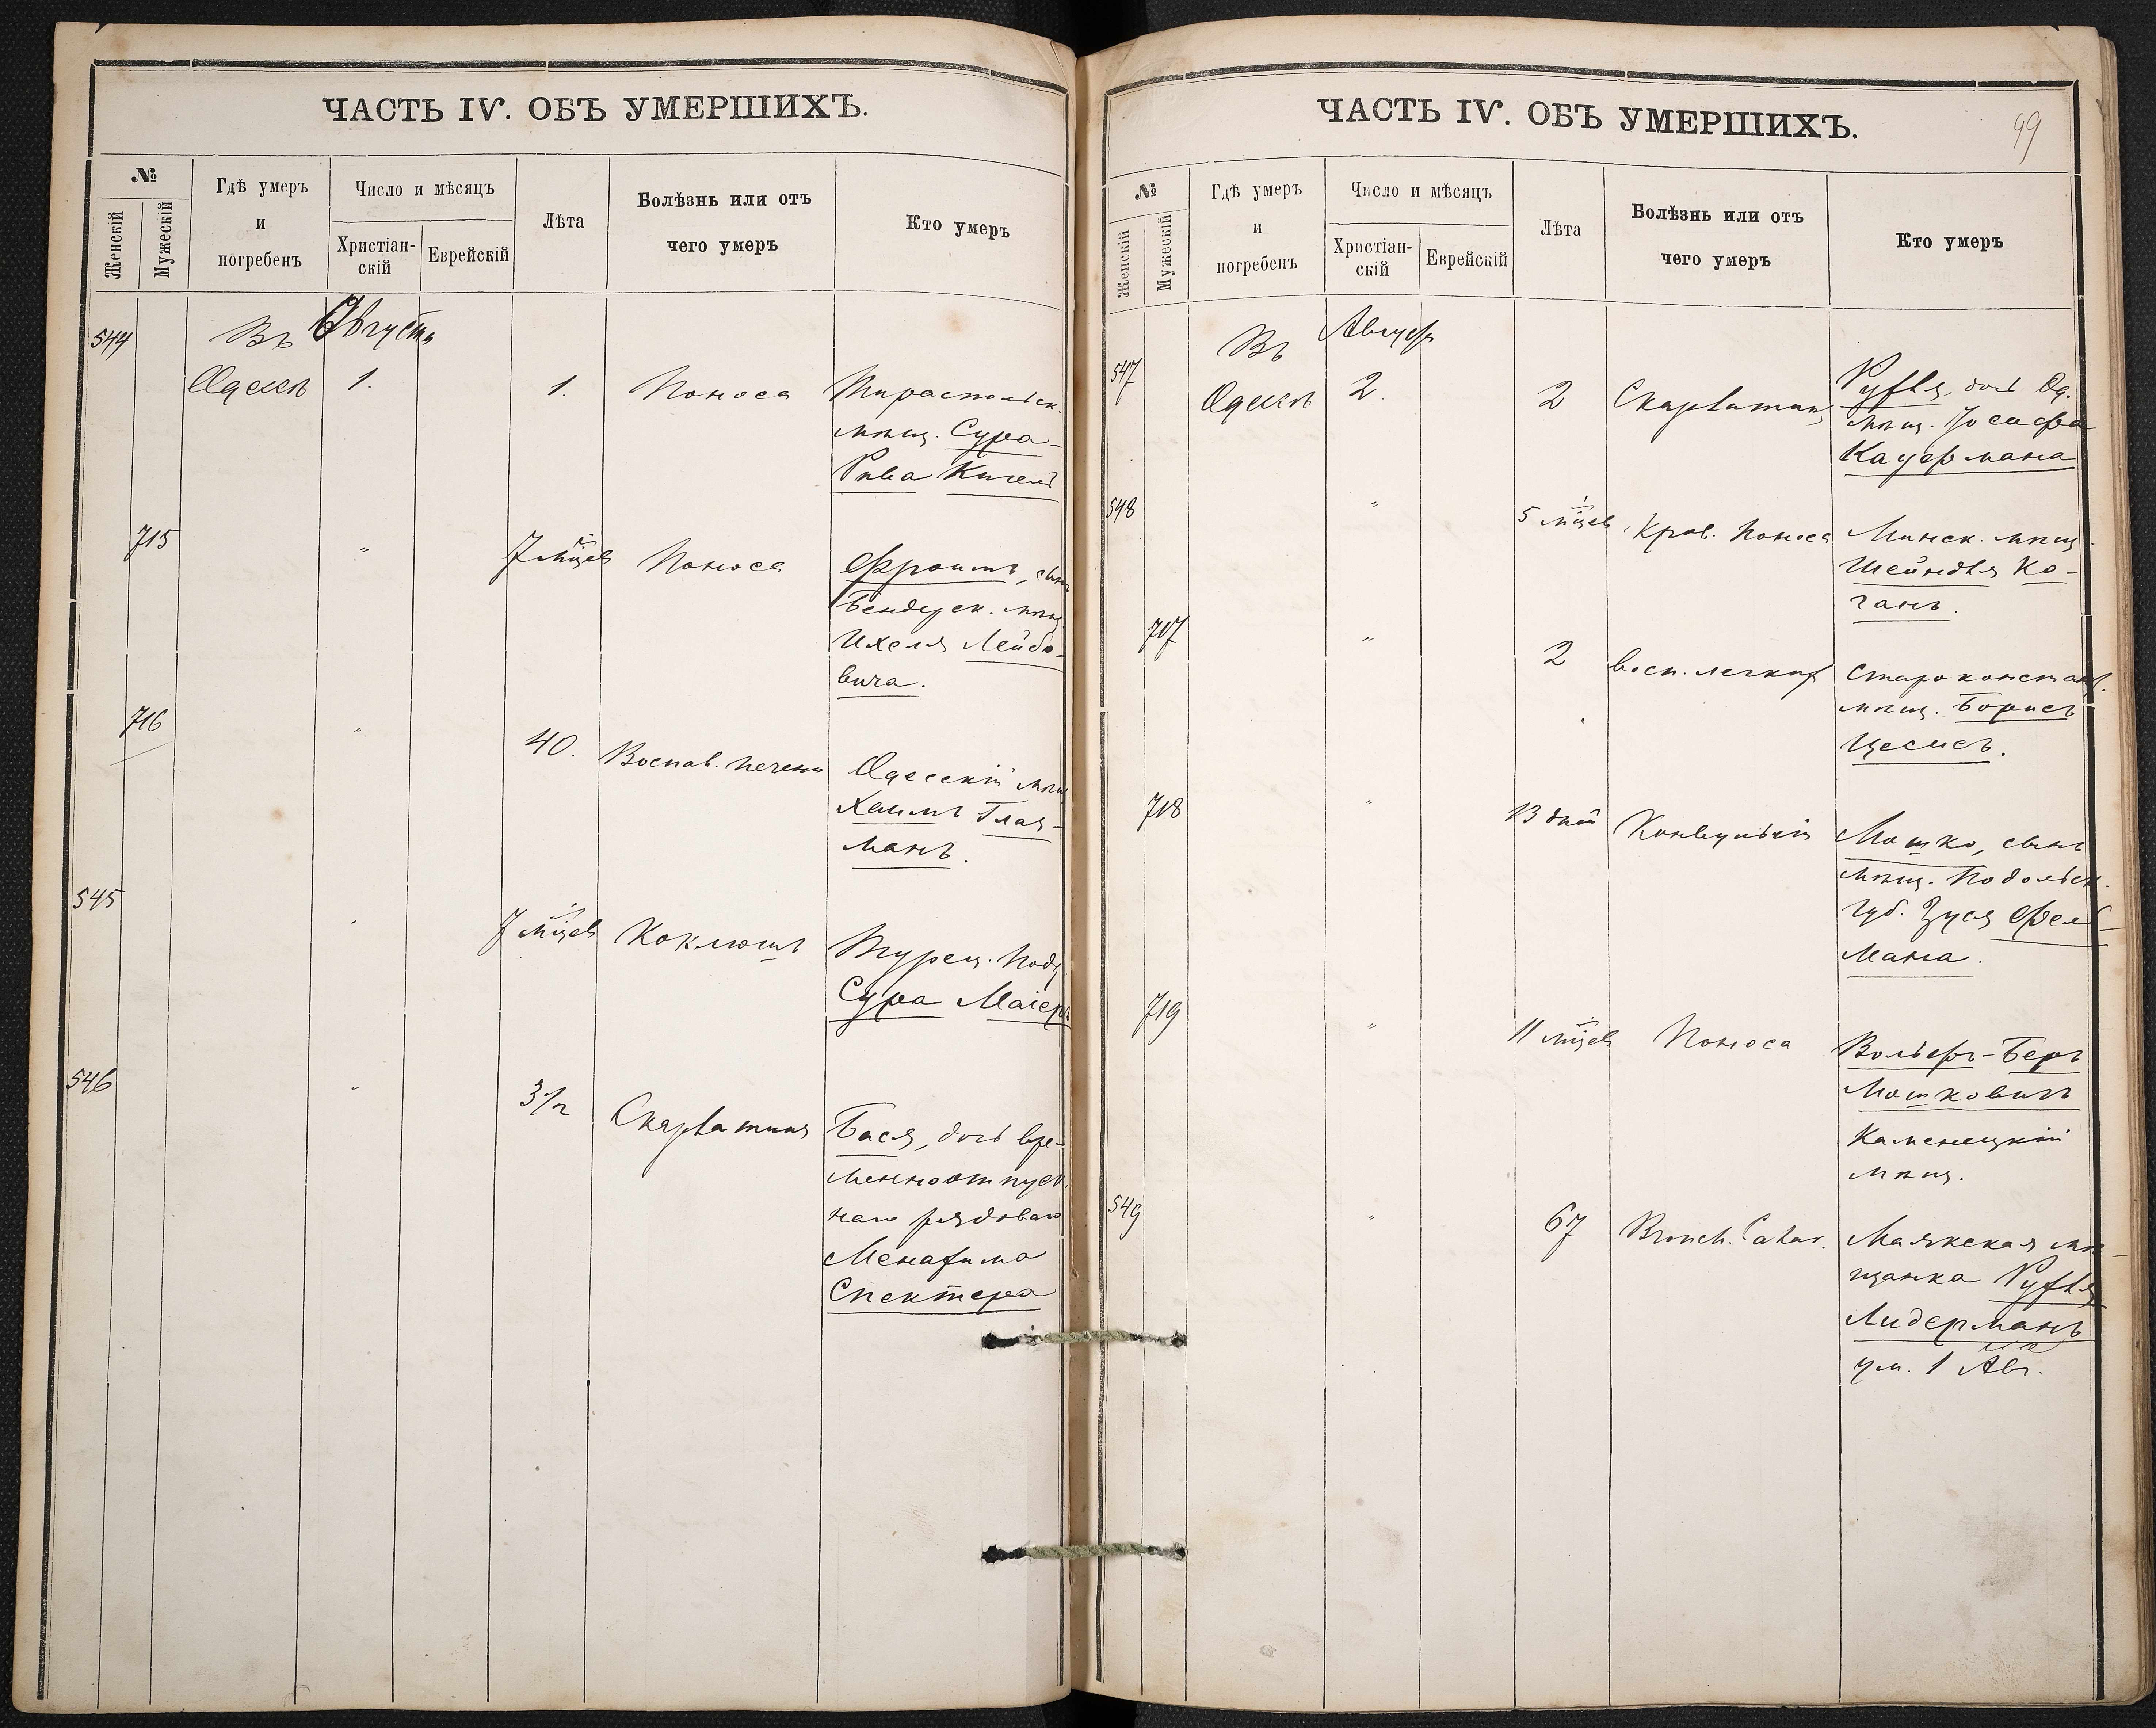 ЧАСТЬ IV. ОБЪ УМЕРШИХЪ.
№
Женскій
Мужескій
Гдѣ умеръ
и
погребенъ
Число и мѣсяцъ
Христіан-
скій
Еврейскій
Лѣта
Болѣзнь или отъ
чего умеръ
Кто умеръ
544 Въ Августъ
Одессѣ 1. 1. Поноса Тираспольск.
мѣщ. Сура-
Рива Кигель
715 " 7 мцев Поноса Фроимъ, сынъ
Бендерск. мѣщ.
Ихеля Лейбо-
вича.
716 " 40. Воспал. печени Одесскій мѣщ.
Хаимъ Глаз-
манъ.
545 " 7 мцев Коклюшъ Турец. Под.
Сура Маіеръ
546 " 3½ Скарлатина Бася, дочь вре-
менноотпуск
наго рядоваго
Менахима
Спектера
ЧАСТЬ IV. ОБЪ УМЕРШИХЪ.
99
№
Женскій
Мужескій
Гдѣ умеръ
и
погребенъ
Число и мѣсяцъ
Христіан-
скій
Еврейскій
Лѣта
Болѣзнь или отъ
чего умеръ
Кто умеръ
547 Въ Августъ
Одессѣ 2. 2 Скарлатина Рухля, дочь Од.
мѣщ. Іосифа
Кауфмана
548 " 5 мцев Кров. Поноса Минск. мѣщ.
Шейндля Ко-
ганъ.
717 " 2 восп. легких Староконстант.
мѣщ. Борисъ
Цесисъ.
718 " 13 дней Конвульсіи Мошко, сынъ
мѣщ. Подольск.
губ. Зуся Фель-
мана.
719 " 11 мцев Поноса Вольфъ-Беръ
Мошковичъ
Каменецкій
мѣщ.
549 " 67 Bronch. Catar. Маякская мѣ-
щанка Рухля
Лидерманъ
ум. 1 Авг.